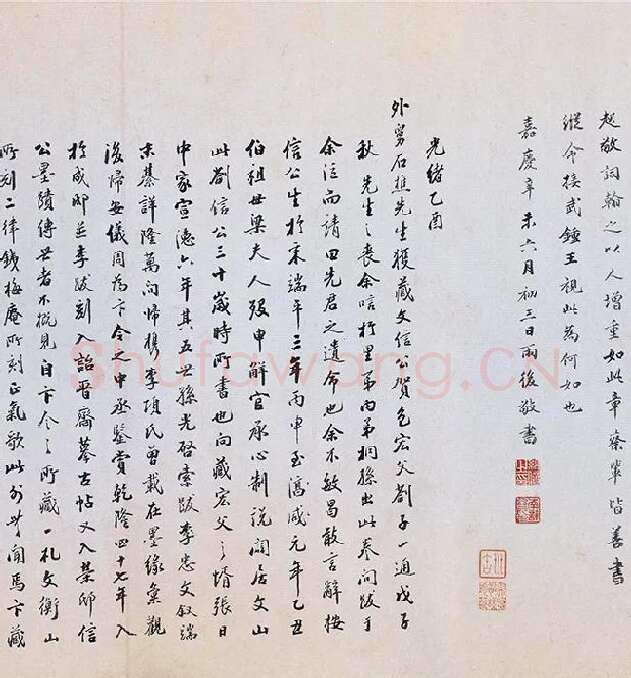 起敬詞翰之以人增重如此章蔡輩皆善書
縱令接武鍾王視此為何如也
嘉慶辛未六月初三日雨後敬書
光緒乙酉
外舅石樵先生獲藏文信公賀包宏父劄子一通戊子
秋先生之喪余唁於里第內弟桐孫出此卷問跋于
余泣而請曰先君之遺命也余不敏曷敢言辭按
信公生於宋端平三年丙申至咸元年乙丑
伯祖世梁夫人歿申解官承心制說闔居文山
此劄信公三十歲時所書也向藏宏父之婿張日
中家宣德六年其五世孫光啓索跋李忠文敘端
末綦詳隆萬間歸檇李項氏曾載在墨緣彙觀
後歸安儀周為卞令之中丞鑒賞乾隆四十七年入
於成邸並李跋刻入詒晉齋摹古帖又入榮邸信
公墨蹟傳世者不概見自卞令之所藏一札文衡山
所刻二律錢梅庵所刻正氣歌此外無聞焉卞藏
Shufawang.CN